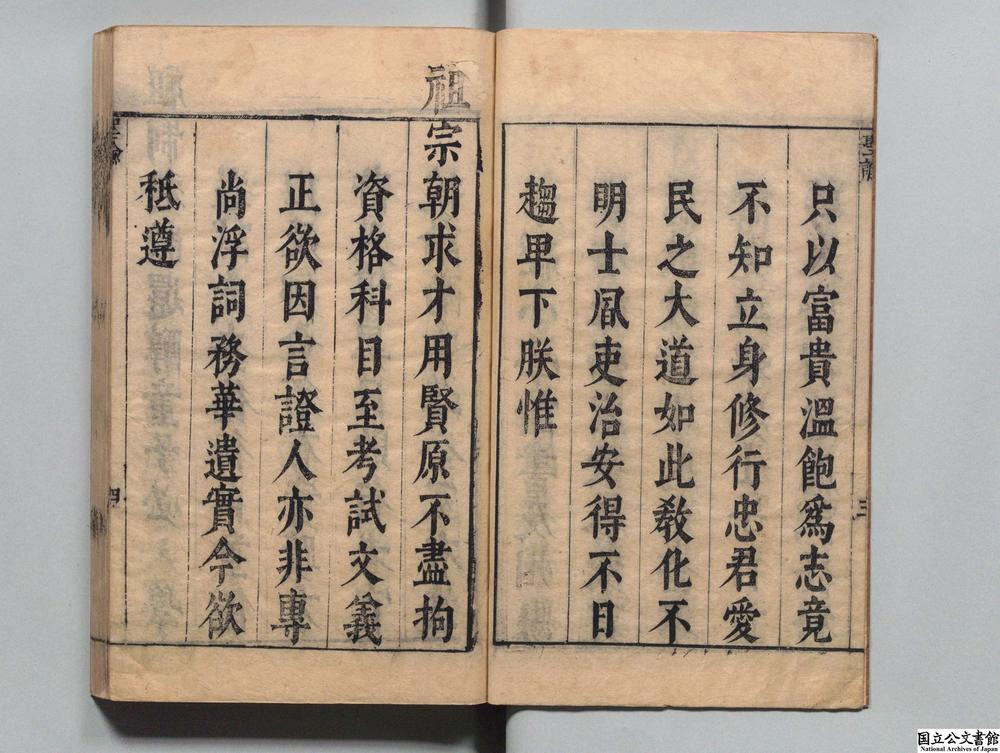 只以富貴溫飽爲志竟
不知立身修行忠君愛
民之大道如此敎化不
明士風吏治安得不日
趨卑下朕惟
祖宗朝求才用賢原不盡拘
資格科目至考試文義
正欲因言證人亦非專
尚浮詞務華遺實今欲
秪遵
三
四
国立公文書館
National Archives of Japan